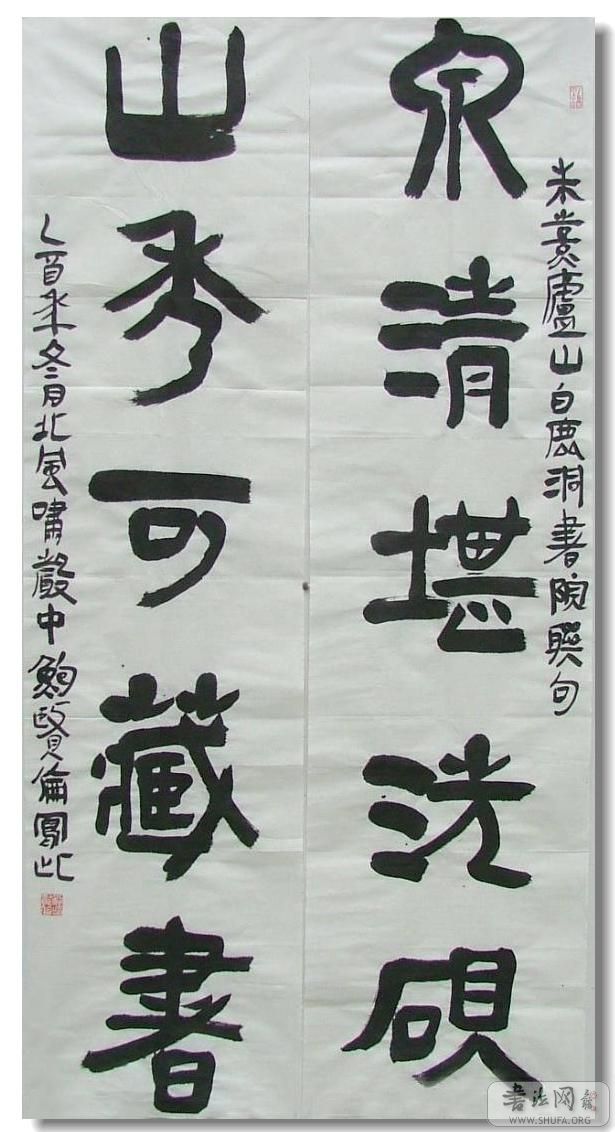 朱熹廬山白鹿洞書院聯句
泉清堪洗硯
山秀可藏書
乙酉年冬月北風嘯嚴中鮑賢倫寫此
書法网
WWW.SHUFA.ORG